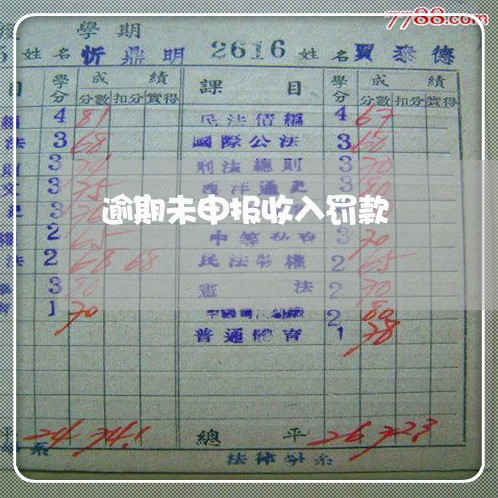 7788.com
學期
5 姓名 忻鼎明 2616 姓名 賈泰德
目 學分 成績 課目 學分 成績
分數 扣分 實得 分數 扣分 實得
4 81 民法債編 4 67
法 3 68 國際公法 3 60
3 刑法總則 3 70
文 3 75 西洋通史 3 80
逾期未申报收入罚款
2 65 3 70
法 2 68 68 民法物權 2 65
3 80 憲法 2 70
育 1 70 2 80
普通體育 1 78
平 24 74.1 總平 26 72.3
系 法律學系